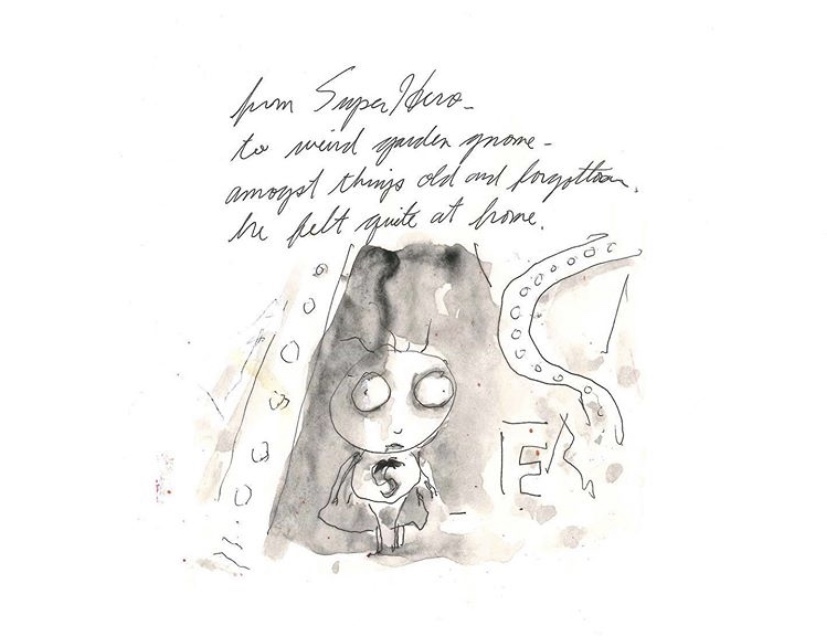 from SuperHero-
to weird garden gnome-
amongst things old and forgotten.
he felt quite at home.
S
E